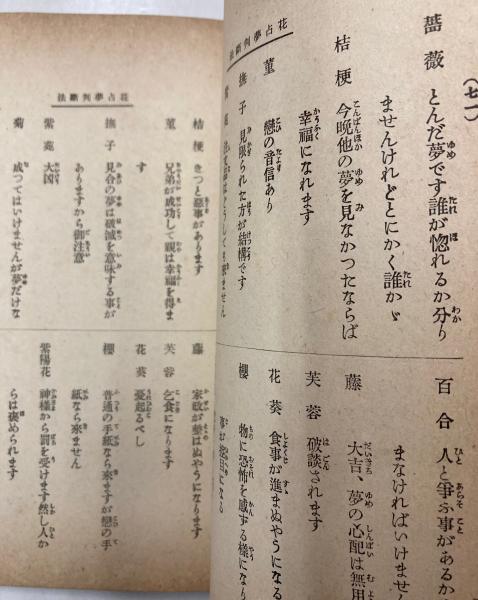 (七一)
花占夢判斷法
薔薇 とんだ夢です誰が惚れるか分り
ませんけれどとにかく誰かゞ
桔梗 今晩他の夢を見なかつたならば
幸福になれます
菫 戀の音信あり
撫子 見限られた方が結構です
百合 人と爭ふ事があるか
まなければいけません
藤 大吉、夢の心配は無用
芙蓉 破談されます
花葵 食事が進まぬやうになる
櫻 物に恐怖を感ずる樣になり
花占夢判斷法
桔梗 きつと惡事があります
菫 兄弟が成功して親は幸福を得ま
す
撫子 見合の夢は破滅を意味する事が
ありますから御注意
紫菀 大凶
菊 成つてはいけませんが夢だけな
藤 家政が整はぬやうになります
芙蓉 乞食になります
花葵 憂起るべし
櫻 普通の手紙なら來ますが戀の手
紙なら來ません
紫陽花 神樣から罰を受けます然し人か
らは褒められます